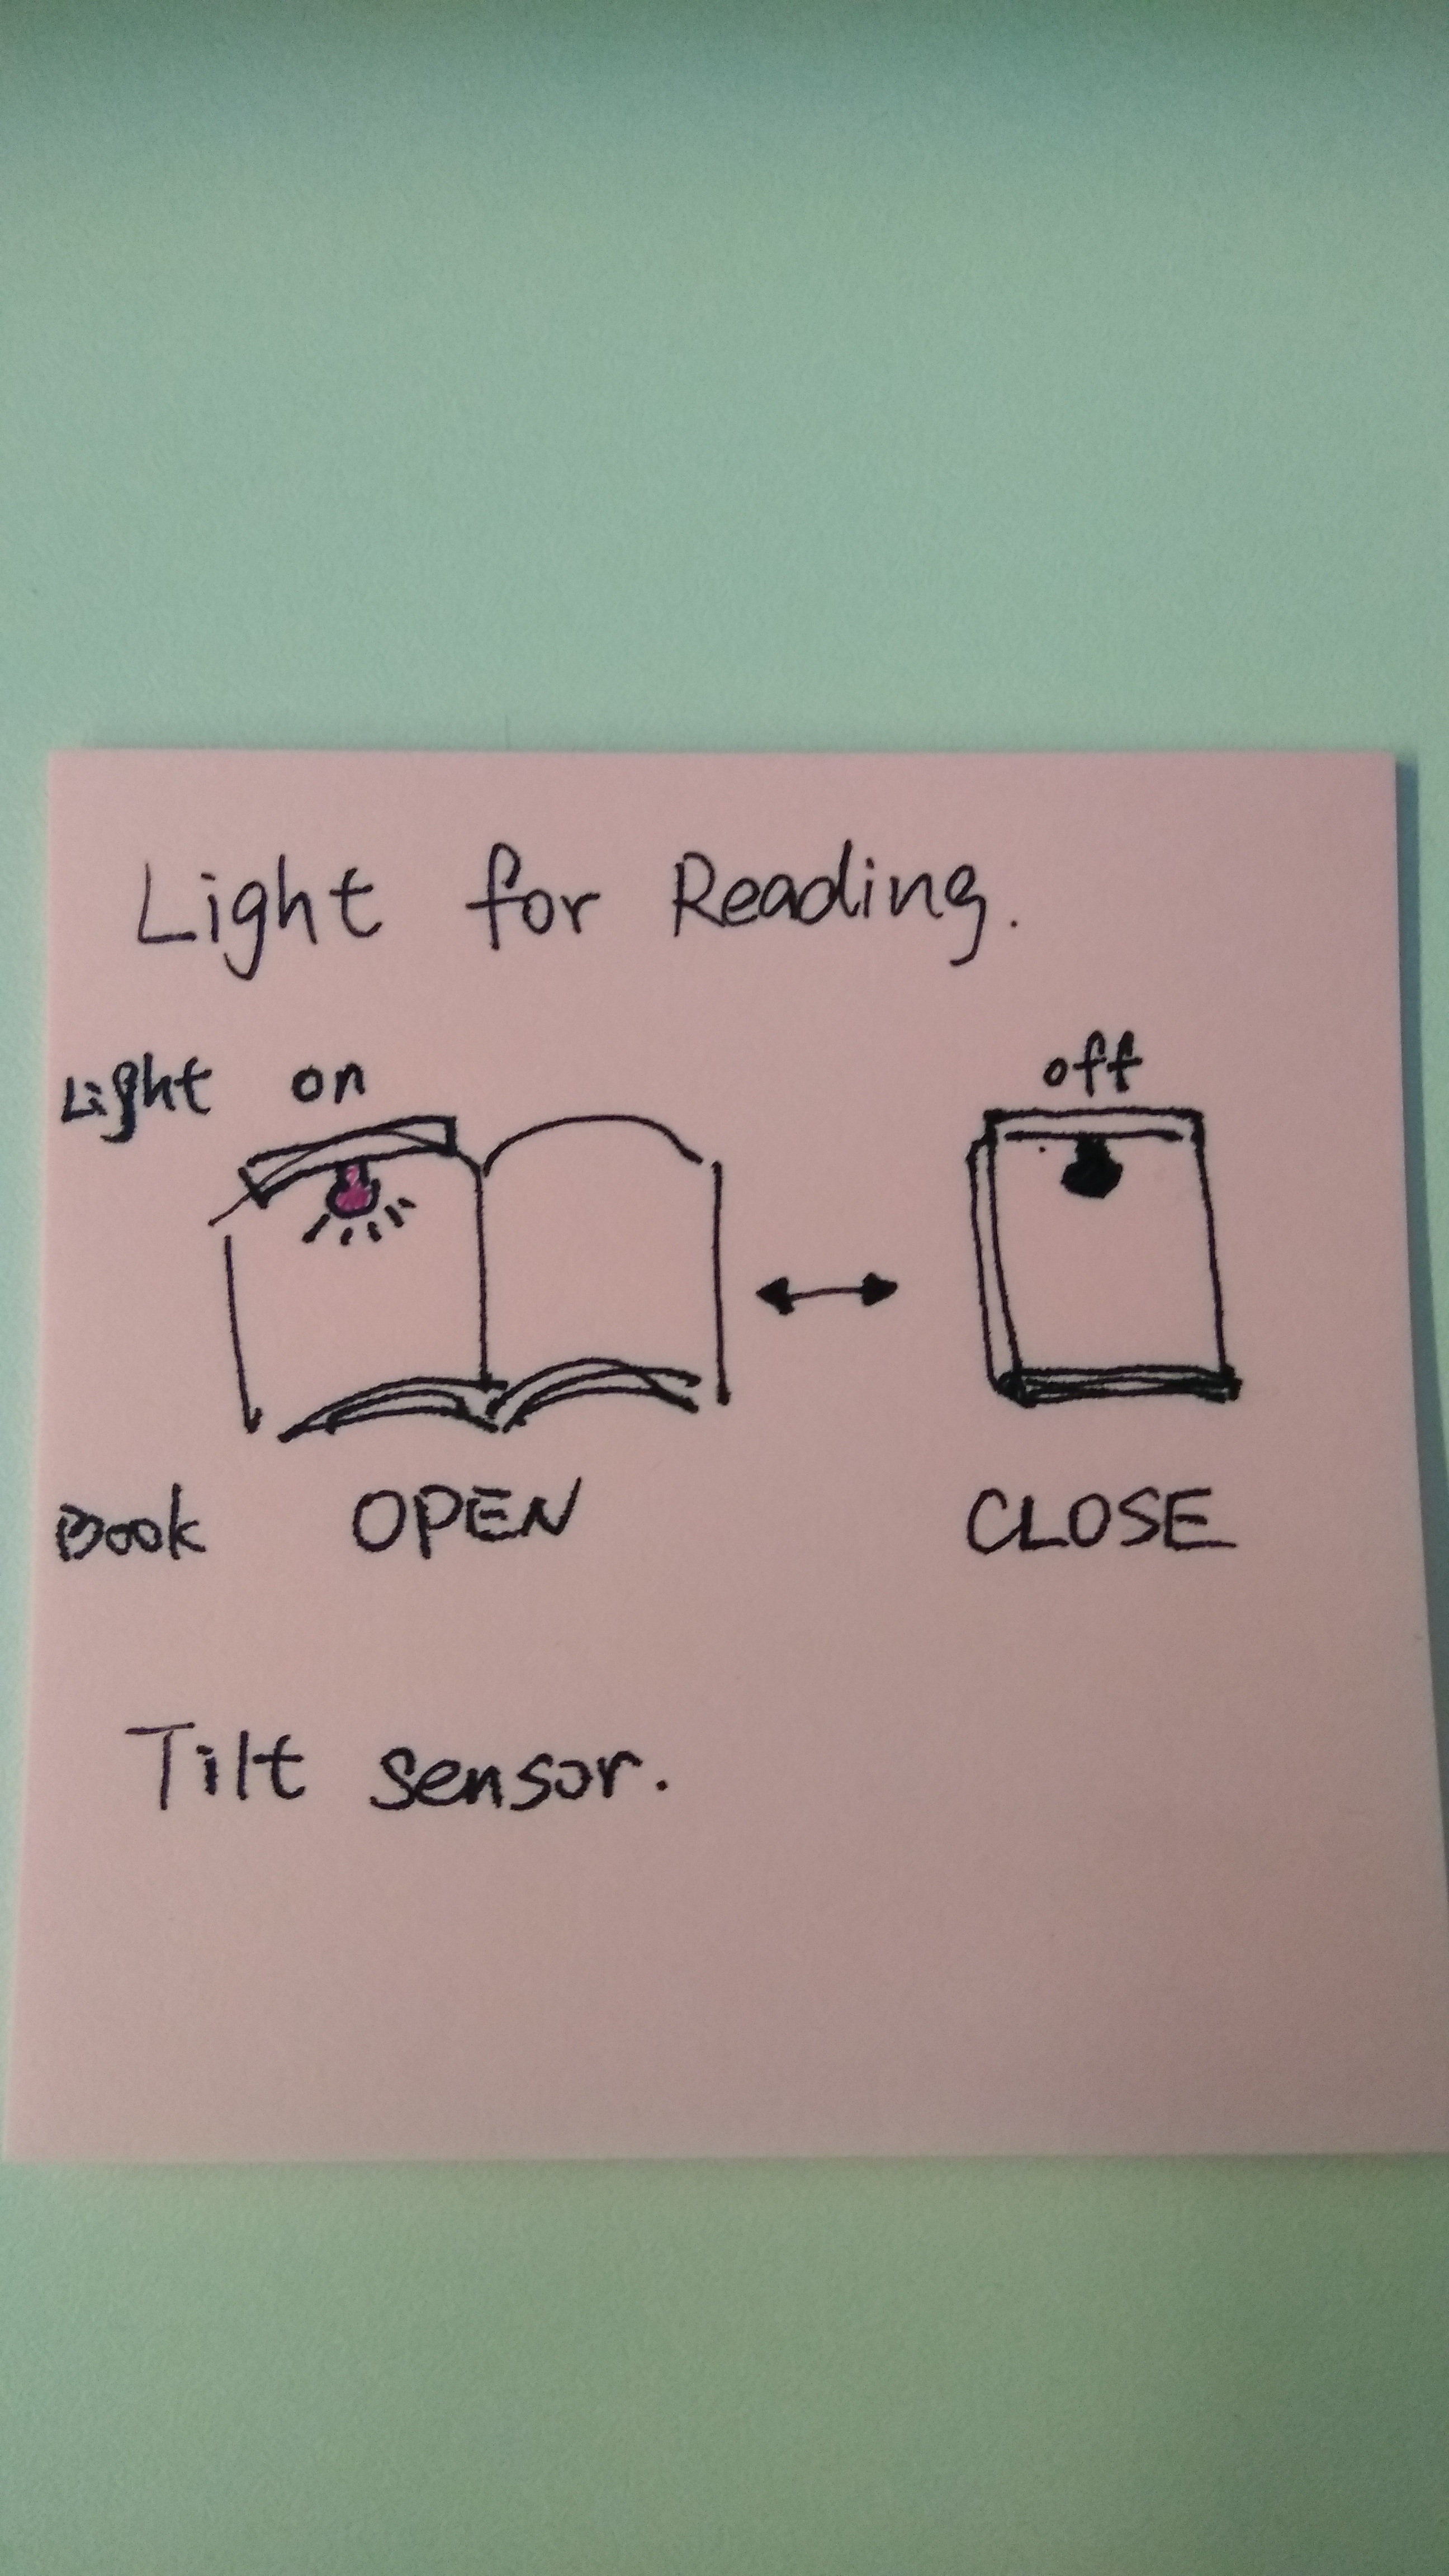 Light for Reading.
Light on off
Book OPEN CLOSE
Tilt sensor.